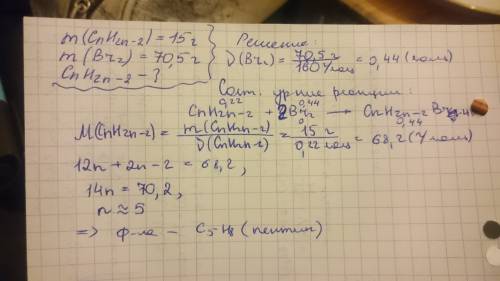 m(CnH2n-2) = 15г
m(Br2) = 70,5г
CnH2n-2 - ?
Решение:
ν(Br2) = 70,5г / 160г/моль = 0,44 (моль)
Сост. ур-ние реакции:
0,22 0,44
CnH2n-2 + 2Br2 → CnH2n-2Br4
0,44
M(CnH2n-2) = m(CnH2n-2) / ν(CnH2n-2) = 15г / 0,22моль = 68,2(г/моль)
12n + 2n - 2 = 68,2,
14n = 70,2,
n ≈ 5
=> ф-ла - C5H8 (пентин)